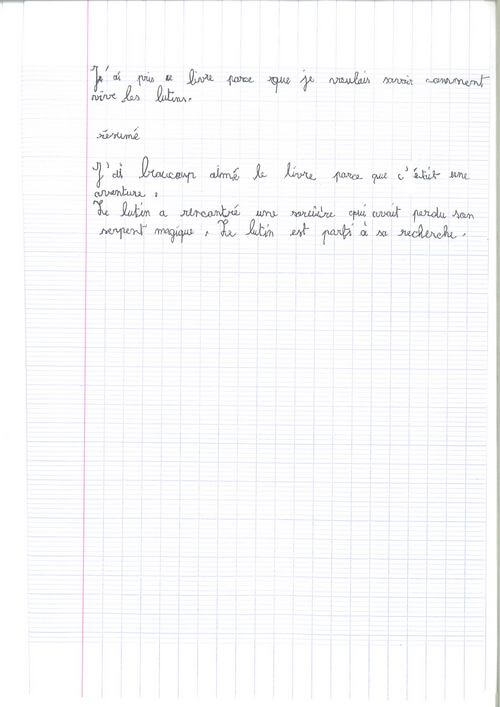 J'ai pris ce livre parce que je voulais savoir comment
vive les lutins.
résumé
J'ai beaucoup aimé le livre parce que c'était une
aventure.
Le lutin a rencontré une sorcière qui avait perdu son
serpent magique. Le lutin est parti à sa recherche.